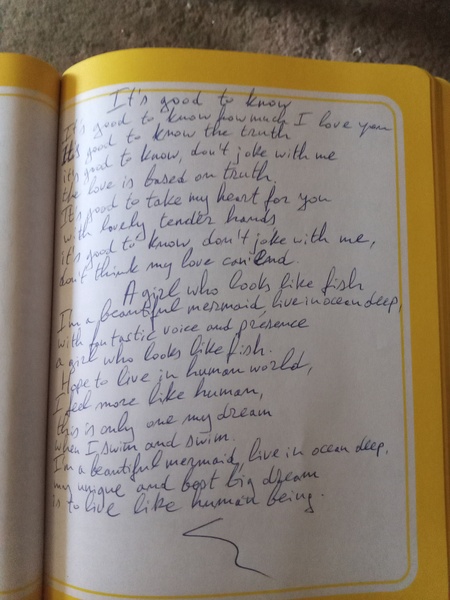 It's good to know
It's good to know how much I love you
It's good to know the truth
it's good to know, don't joke with me
the love is based on truth.
It's good to take my heart for you
with lovely, tender hands
it's good to know, don't joke with me,
don't think my love can end.
A girl who looks like fish
I'm a beautiful mermaid, live in ocean deep,
with fantastic voice and presence
a girl who looks like fish.
Hope to live in human world,
I feel more like human,
this is only one my dream
when I swim and swim.
I'm a beautiful mermaid, live in ocean deep,
my unique and best big dream
is to live like human being.